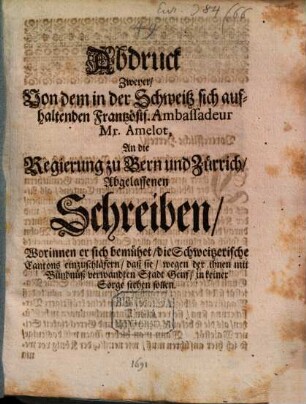 Abdruck
Zweyer/
Von dem in der Schweitz sich auf-
haltenden Frantzösis. Ambassadeur
Mr. Amelot,
An die
Regierung zu Bern und Zürrich/
Abgelassenen
Schreiben/
Worinnen er sich bemühet/ die Schweitzerische
Cantons einzuschläfern/ daß sie/ wegen der ihnen mit
Bündnüß verwandten Stadt Genf/ in keiner
Sorge stehen sollen.
1691